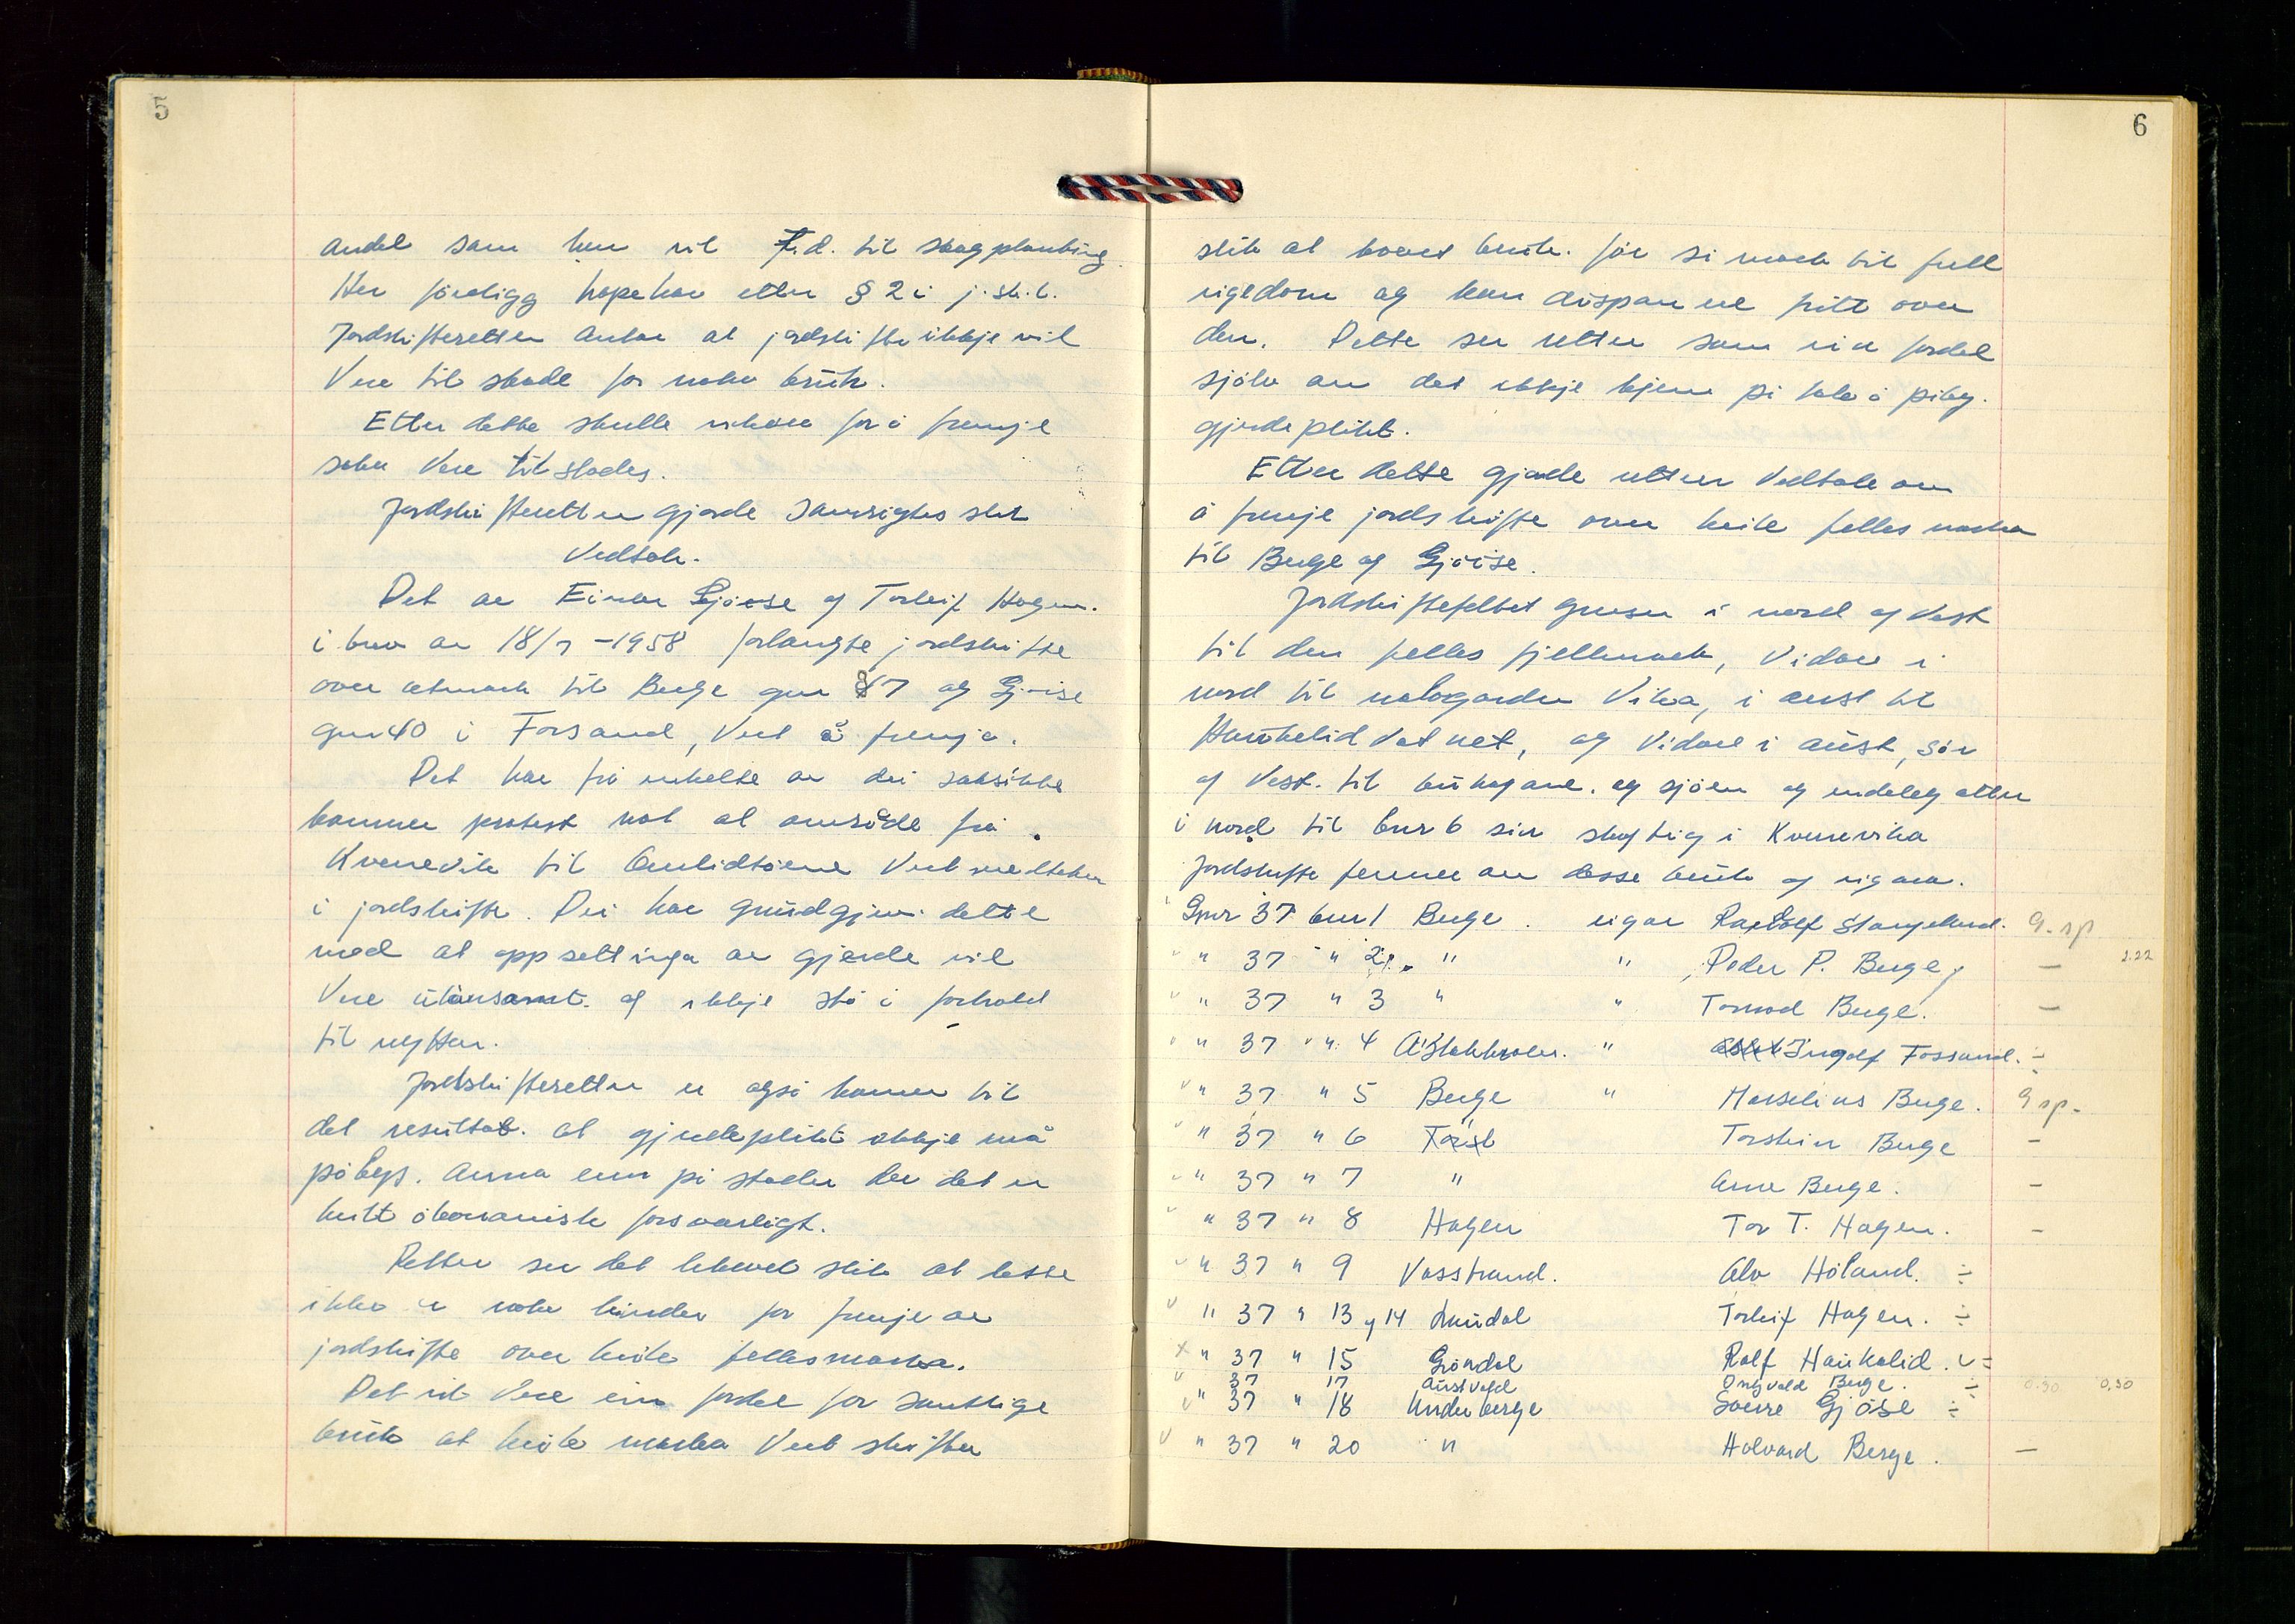 5
andel som han vil f.d. til skogplanting.
Her föreligg höpehav etter § 2 i j.sk.l.
Jordskifteretten antar at jordskifte ikkje vil
Vere til skade for noko bruk.
Etter dette skulle vilkåra for å fremje
saka Vere til stades.
Jordskifteretten gjorde samrøystes slikt
Vedtak.
Det av Einar Gjöse og Torleif Hagen
i brev av 18/7-1958 forlangte jordskifte
over utmark til Berge gnr 37 og Gjöise
gnr 40 i Forsand, Vert å fremja.
Det har frå enkelte av dei saksökte
kommen protest mot at område frå
Kvernevik til Aulidtöene Vert medteken
i jordskifte. Dei har grunngjeve dette
med at oppsettinga av gjerde vil
Vere ulönsamt og ikkje stå i forhold
til nytten.
Jordskifteretten er også komen til
det resultat at gjerdeplikt ikkje må
påleggs anna enn på stader der det er
heilt ökonomisk forsvarligt.
Retten ser det likevel slik at dette
ikkje er noko hinder for fremje av
jordskifte over heile fellesmarka.
Det vil Vere ein fordel for samtlige
bruk at heile marka Vert skiften
6
slik at kvart bruk får si mark til full
eigedom og kan disponere fritt over
den. Dette ser retten som ein fordel
sjölv om det ikkje kjem på tale å påleg.
gjerdeplikt.
Etter dette gjorde retten Vedtak om
å fremje jordskifte over heile fellesmarka
til Berge og Gjöise.
Jordskiftefeltet grensar i nord og Vest
til den felles fjellmark, Vidare i
nord til nabogarden Vika, i aust til
Haukelidvatnet, og Vidare i aust, sör
og Vest til innhegnane og sjöen og endeleg atter
i nord til bnr 6 sin skogteig i Kvernevika
Jordskifte femner om desse bruk og eigara.
Gnr 37 bnr 1 Berge. eigar Randolf Stangeland. 9 sp
" 37 " 2 " " Peder P. Berge — 2.22
" 37 " 3 " " Tormod Berge. —
" 37 " 4 " Ingolf Fossand. ÷
" 37 " 5 Berge " Marselius Berge. 9 sp.
" 37 " 6 Torstein Berge —
" 37 " 7 " Arne Berge. —
" 37 " 8 Hagen Tor T. Hagen. —
" 37 " 9 Vasstrand. Alv Höland. ÷
" 37 " 13 og 14 Lundal Torleif Hagen. ÷
x " 37 " 15 Gröndal Rolf Haukalid. ÷
37 17 Austvold Ingvald Berge. ÷ 0.30 0,30
" 37 " 18 Underberge Sverre Gjöse ÷
" 37 " 20 " Halvard Berge. —